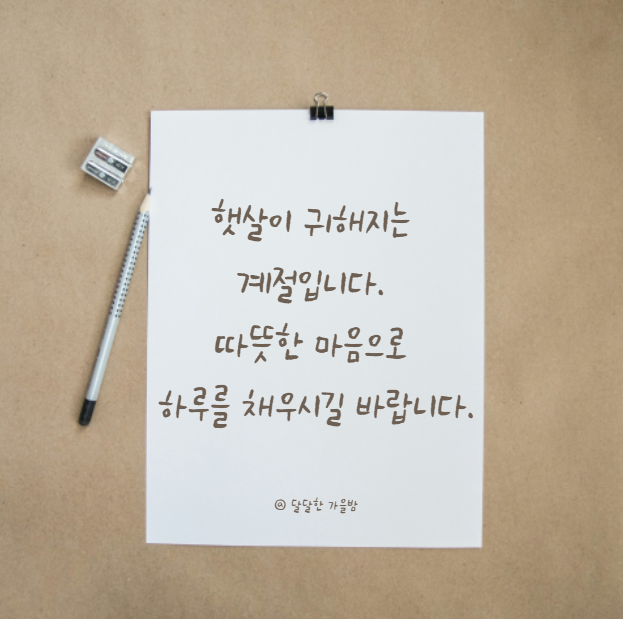 햇살이 귀해지는
계절입니다.
따뜻한 마음으로
하루를 채우시길 바랍니다.
@ 달달한 가을밤